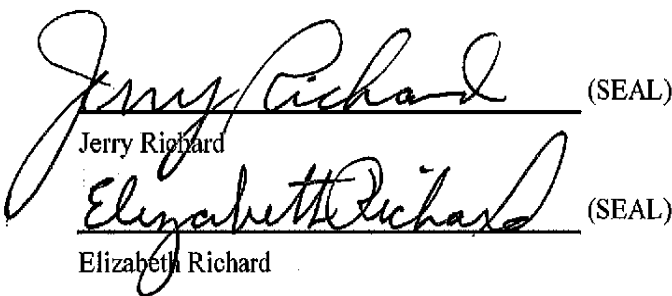 Jerry Richard (SEAL)
Jerry Richard
Elizabeth Richard (SEAL)
Elizabeth Richard